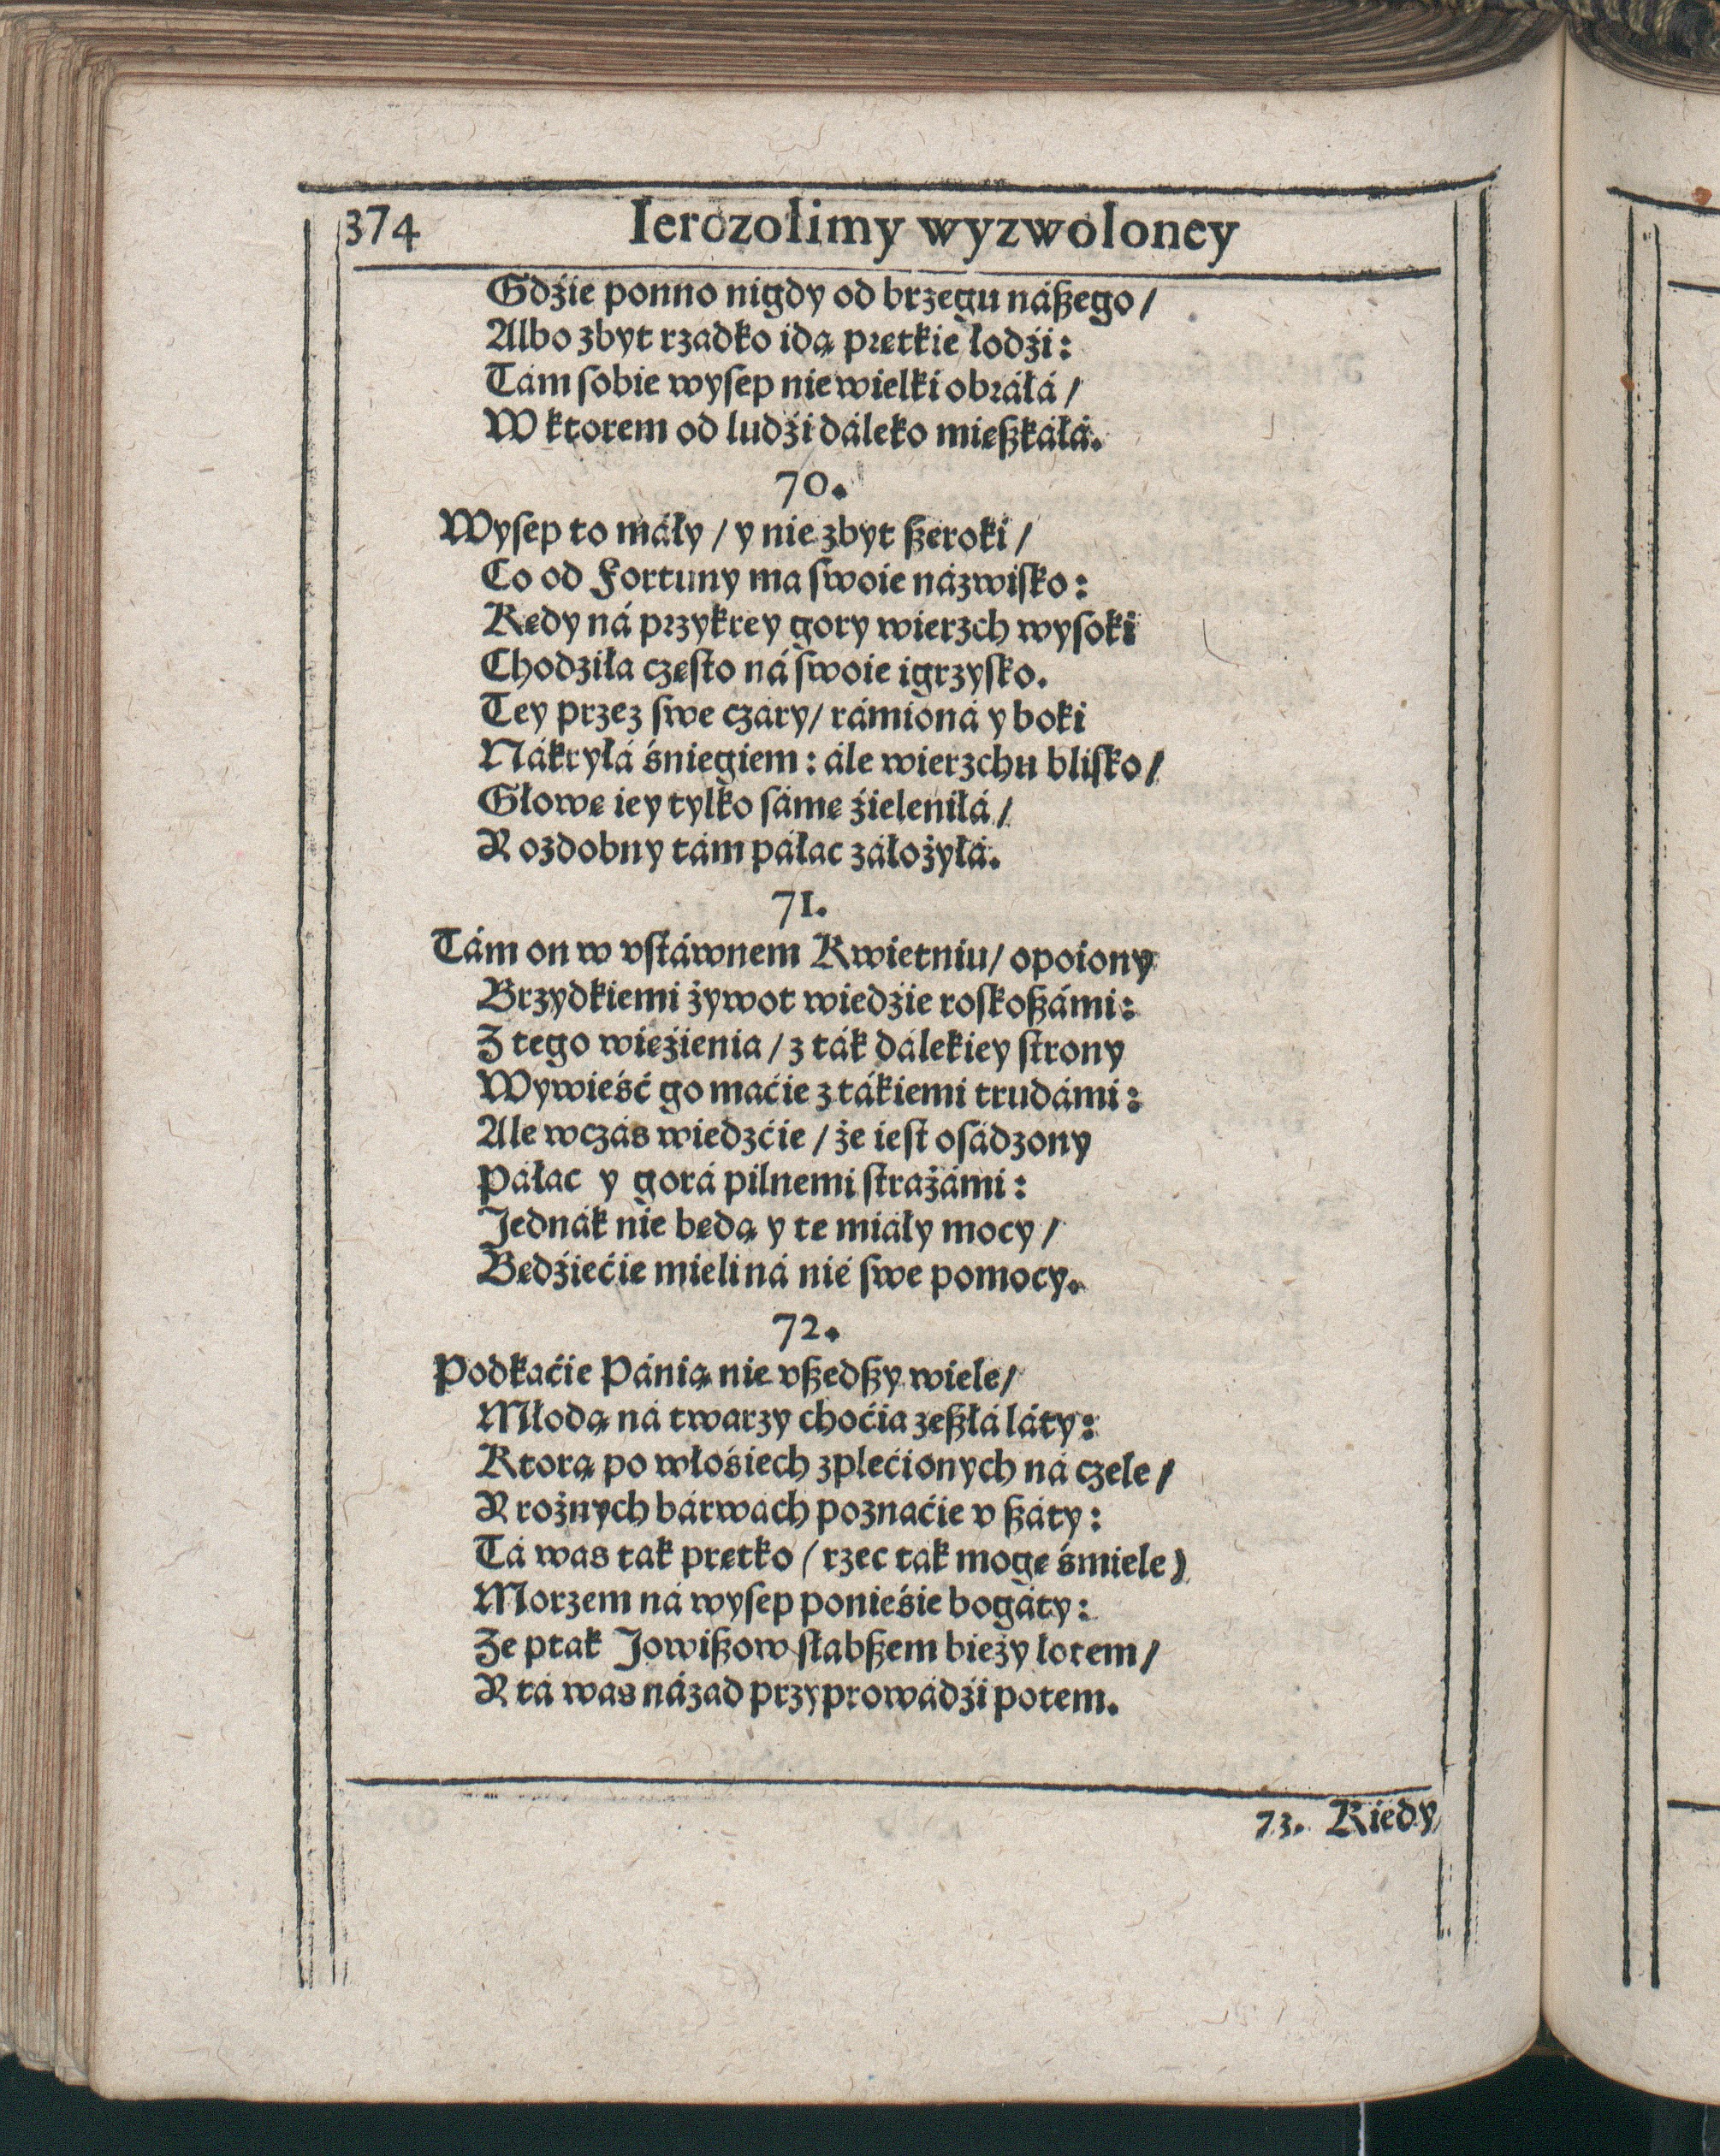 374 Ierozolimy wyzwoloney
Gdźie ponno nigdy od brzegu nászego/
Albo zbyt rzadko idą prętkie łodźi:
Tám sobie wysep niewielki obráłá/
W ktorem od ludźi dáleko mieszkáłá.
70.
Wysep to máły/ y nie zbyt szeroki/
Co od Fortuny ma swoie názwisko:
Kędy ná przykrey gory wierzch wysoki
Chodziła często ná swoie igrzysko.
Tey przez swe czáry/ rámioná y boki
Nákryłá śniegiem: ále wierzchu blisko/
Głowę iey tylko sámę źieleniłá/
Y ozdobny tám páłac záłożyłá.
71.
Tám on w vstáwnem Kwietniu/ opoiony
Brzydkiemi żywot wiedźie roskoszámi:
Z tego więźienia/ z ták dálekiey strony
Wywieść go maćie z tákiemi trudámi:
Ale wczás wiedzćie/ że iest osádzony
Páłac y gorá pilnemi strażámi:
Jednák nie będą y te miáły mocy/
Będźiećie mieli ná nię swe pomocy.
72.
Podkaćie Pánią nie vszedszy wiele/
Młodą ná twarzy choćia zeszłá láty:
Ktorą po włośiech zplećionych ná czele/
Y rożnych bárwách poznaćie v száty:
Tá was tak prętko (rzec ták mogę śmiele)
Morzem ná wysep poniesie bogáty:
Że ptak Jowiszow słabszem bieży lotem/
Y tá was názad przyprowádźi potem.
73. Kiedy